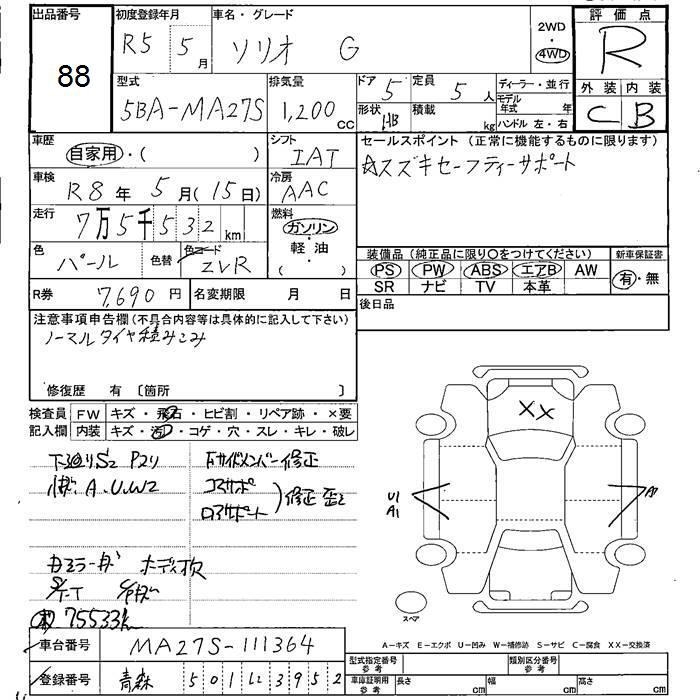 出品番号
88
初度登録年月
R5 5 月
車名・グレード
ソリオ G
2WD
・
4WD
評価点
R
外装 内装
C B
型式
5BA-MA27S
排気量
1,200 cc
ドア 5
定員 5 人
形状 HB
積載 kg
ディーラー・並行
モデル年式 年
ハンドル 左・右
車歴
自家用・( )
シフト
IAT
セールスポイント (正常に機能するものに限ります)
☆スズキセーフティーサポート
車検
R8 年 5 月 (15 日)
冷房
AAC
走行
7万5千532 km
燃料
ガソリン
軽・油
( )
色
パール
色替
色コード
ZVR
装備品 (純正品に限り〇をつけてください)
PS PW ABS エアB AW
SR ナビ TV 本革
新車保証書
有・無
R券 7,690 円
名変期限 月 日
後日品
注意事項申告欄 (不具合内容等は具体的に記入して下さい)
ノーマルタイヤ積みこみ
修復歴 有 〔箇所 〕
検査員 FW キズ・飛石・ヒビ割・リペア跡・×要
記入欄 内装 キズ・汚・コゲ・穴・スレ・キレ・破レ
下廻りS2 P2リ
A.U.W2
右サイドメンバー修正
コアサポ
ロアサポート
修正 歪2
カラーキズ ボディ
75533k
XX
U1
A1
A1
スペア
A－キズ E－エクボ U－凹み W－補修跡 S－サビ C－腐食 XX－交換済
車台番号 MA27S-111364
登録番号 青森 501 に 3952
型式指定番号 参考
類別区分番号 参考
車庫証明用 参考
長さ cm
幅 cm
高さ cm